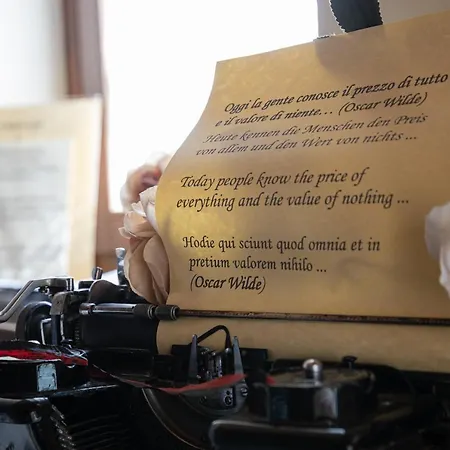 Oggi la gente conosce il prezzo di tutto
e il valore di niente... (Oscar Wilde)
Heute kennen die Menschen den Preis
von allem und den Wert von nichts ...
Today people know the price of
everything and the value of nothing ...
Hodie qui sciunt quod omnia et in
pretium valorem nihilo ...
(Oscar Wilde)